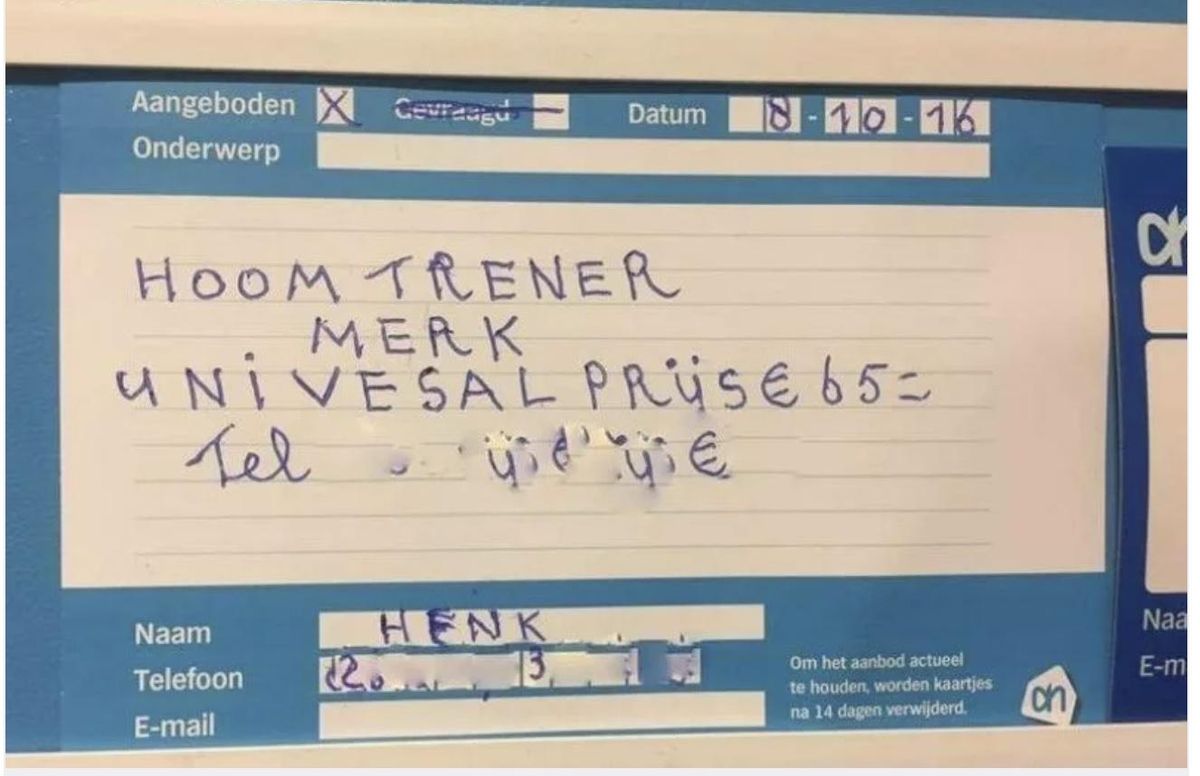 Aangeboden X Gevraagd Datum 8-10-16
Onderwerp
HOOM TRENER
MERK
UNIVESAL PRIJSE 65=
Tel
Naam HENK
Telefoon
E-mail
Om het aanbod actueel
te houden, worden kaartjes
na 14 dagen verwijderd.
ah
ah
Naa
E-m